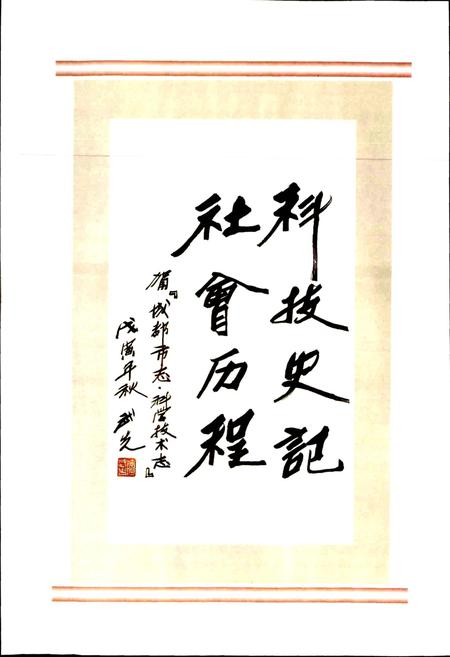 科技史记
社會历程
賀『成都市志·科学技术志』
戊寅年秋